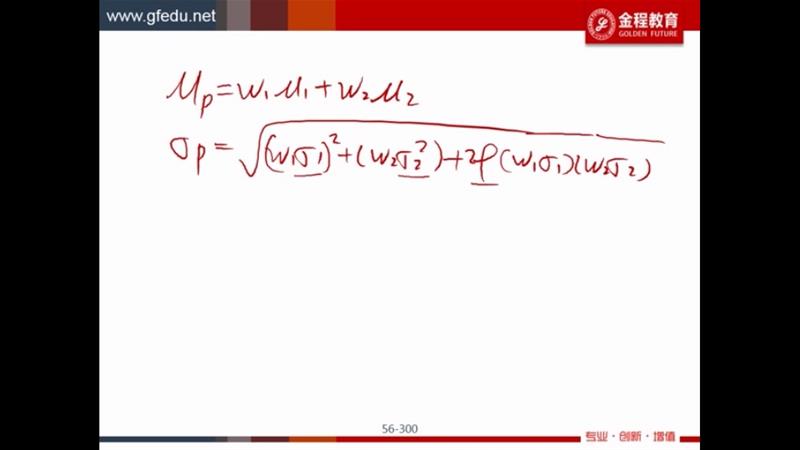 www.gfedu.net
金程教育
GOLDEN FUTURE
μp=w₁μ₁+w₂μ₂
σp=√(w₁σ₁)²+(w₂σ₂²)+2ρ(w₁σ₁)(w₂σ₂)
56-300
专业·创新·增值